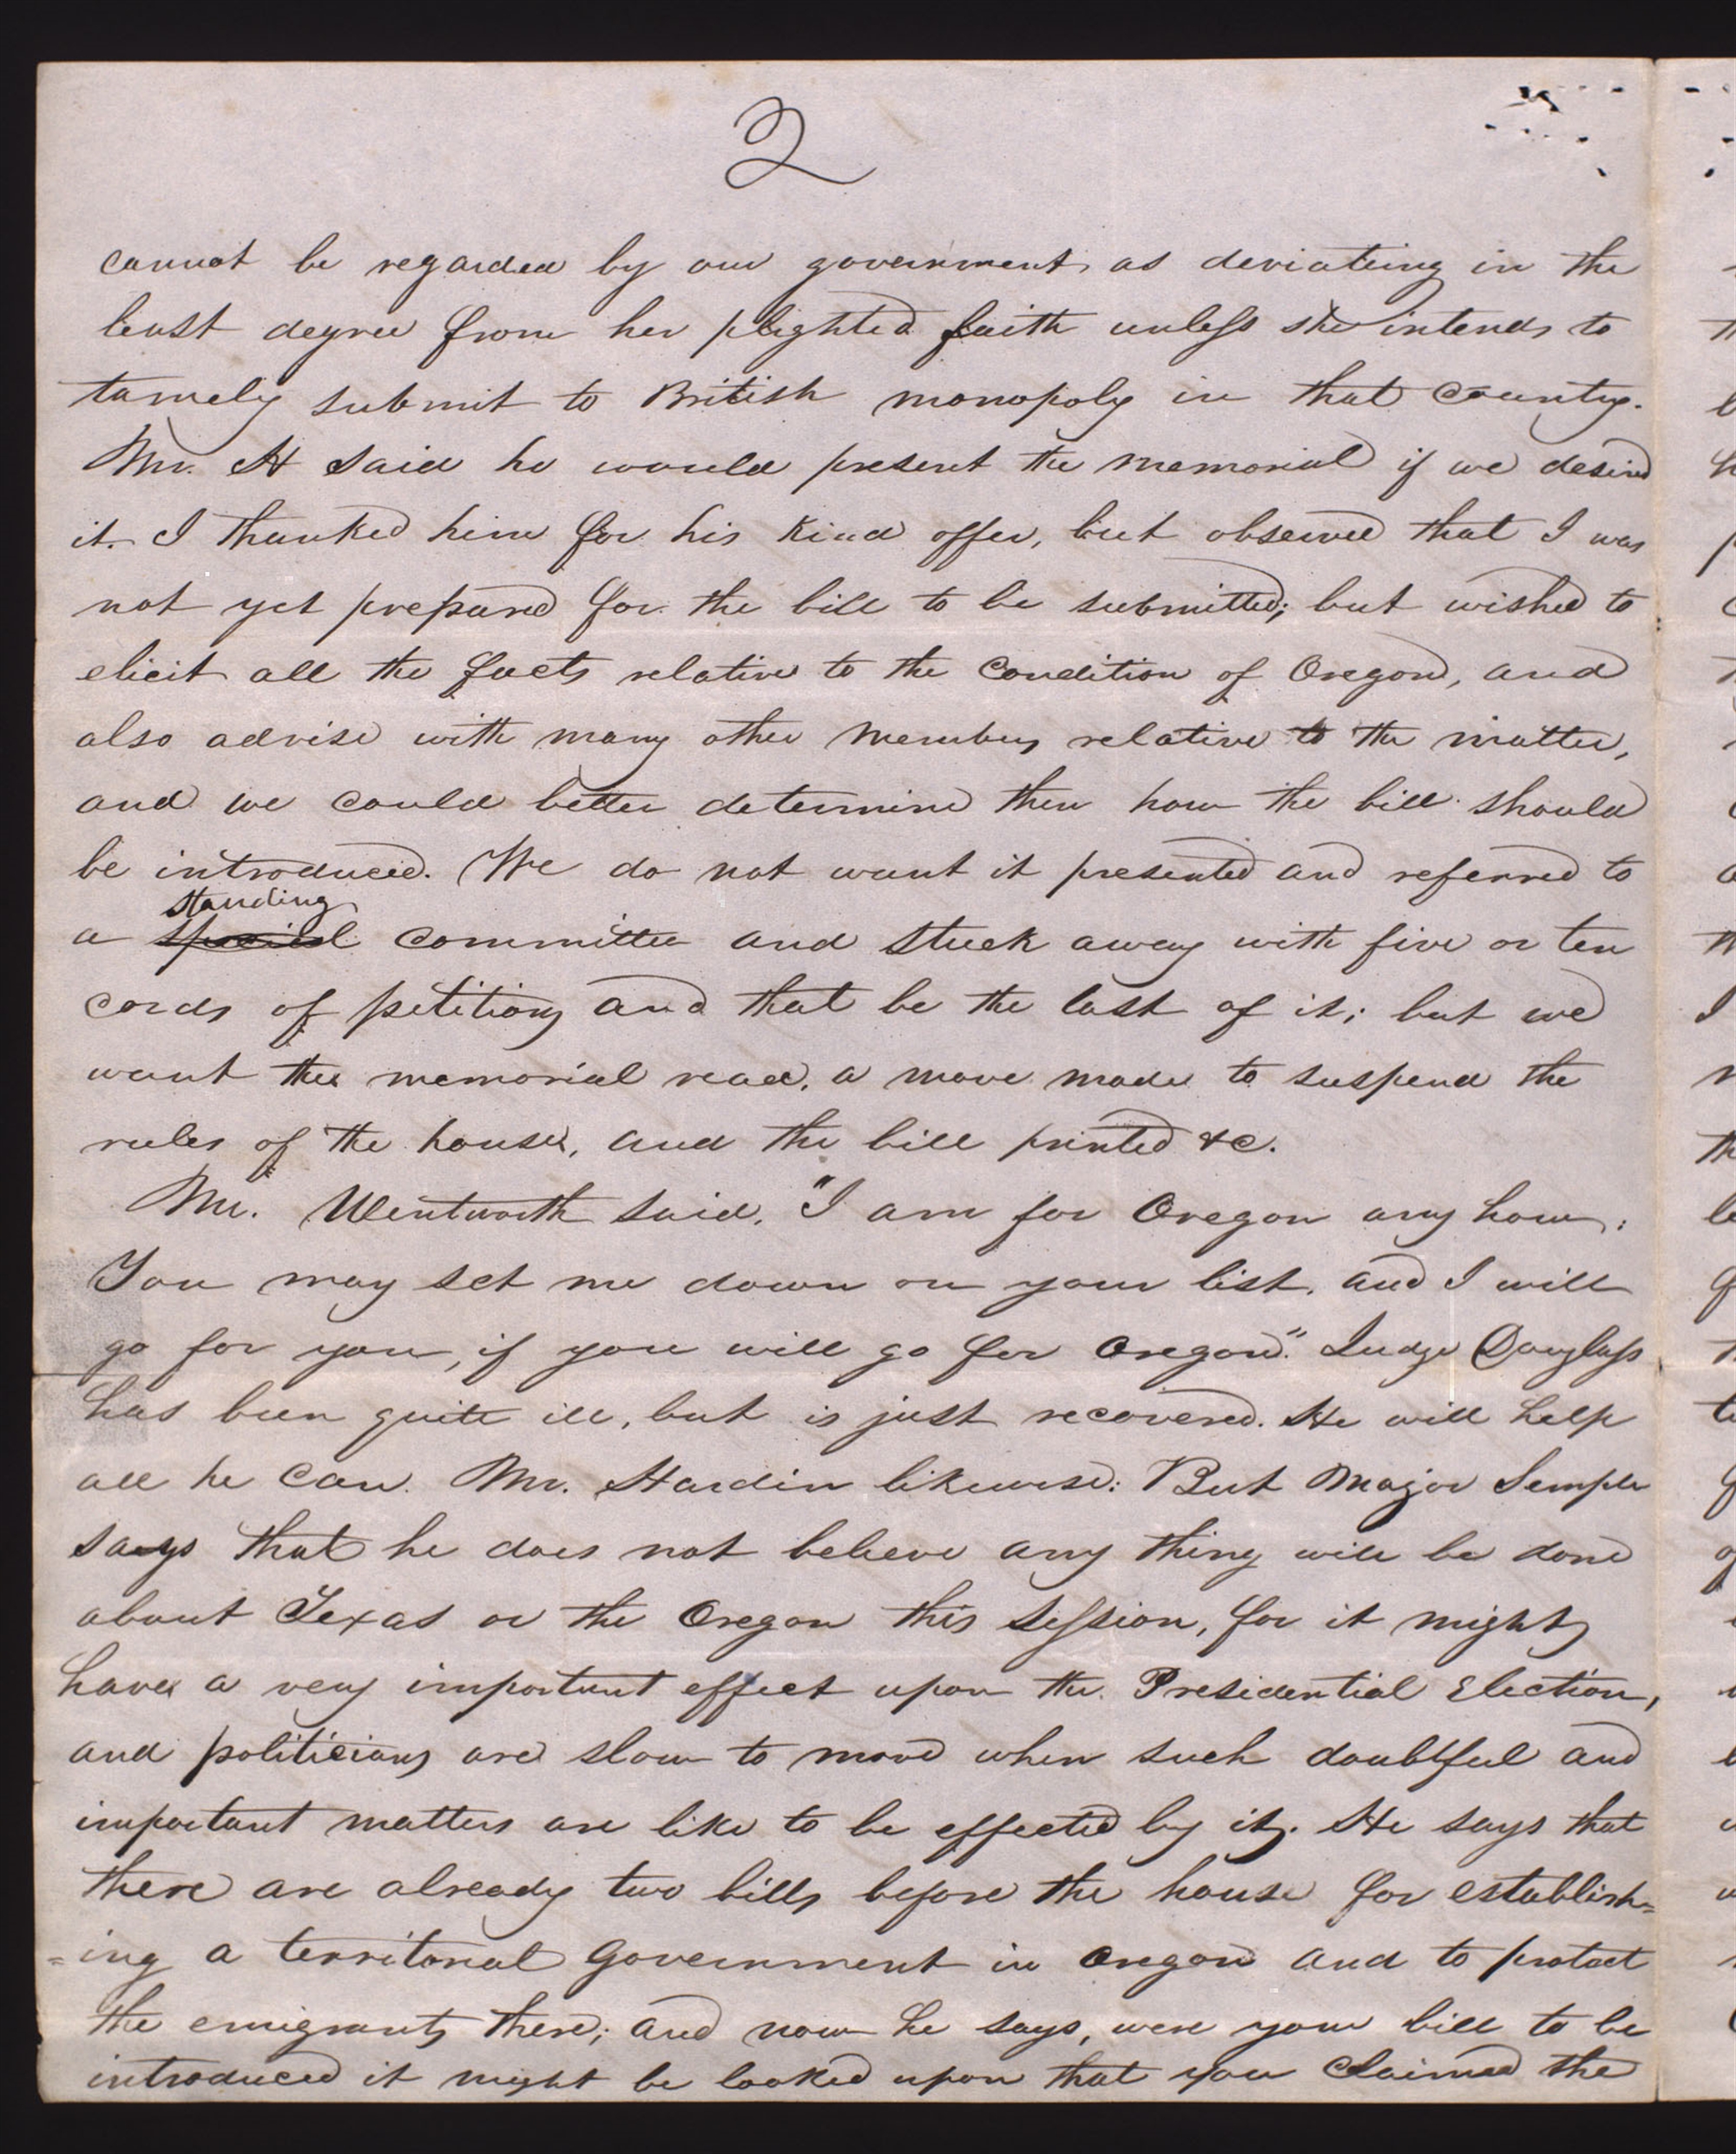 2
cannot be regarded by our government, as deviateing in the
least degree from her plighted faith unless she intends to
tamely submit to British monopoly in that country.
Mr. H said he would present the memorial if we desired
it. I thanked him for his kind offer, but observed that I was
not yet prepared for the bill to be submitted; but wished to
elicit all the facts relative to the condition of Oregon, and
also advise with many other members relative to the matter,
and we could better determine then how the bill should
be introduced. We do not want it presented and referred to
standing
a special committee and stuck away with five or ten
cords of petitions and that be the last of it; but we
want the memorial read, a move made to suspend the
rules of the house, and the bill printed &c.
Mr. Wentworth said, "I am for Oregon any how;
You may set me down on your list, and I will
go for you, if you will go for Oregon." Judge Douglass
has been quite ill, but is just recovered. He will help
all he can. Mr. Hardin likewise: But Major Semple
says that he does not believe any thing will be done
about Texas or the Oregon this session, for it might
have a very important effect upon the Presidential Election,
and politicians are slow to move when such doubtful and
important matters are like to be effected by it. He says that
there are already two bills before the house for establish=
=ing a territorial government in Oregon and to protect
the emigrants there; and now he says, were your bill to be
introduced it might be looked upon that you claimed the